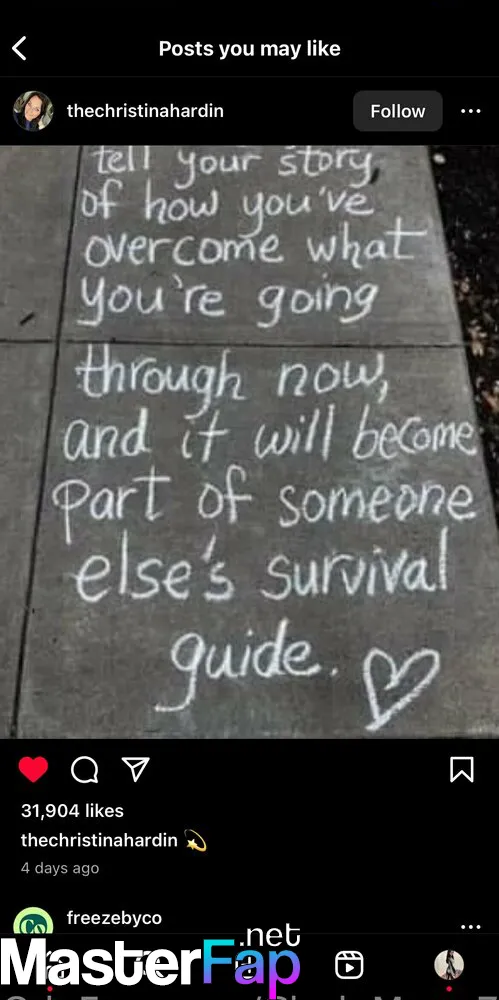 Posts you may like
thechristinahardin
Follow
tell your story,
of how you've
overcome what
you're going
through now,
and it will become
part of someone
else's survival
guide.
31,904 likes
thechristinahardin
4 days ago
Co
freezebyco
.net
MasterFap